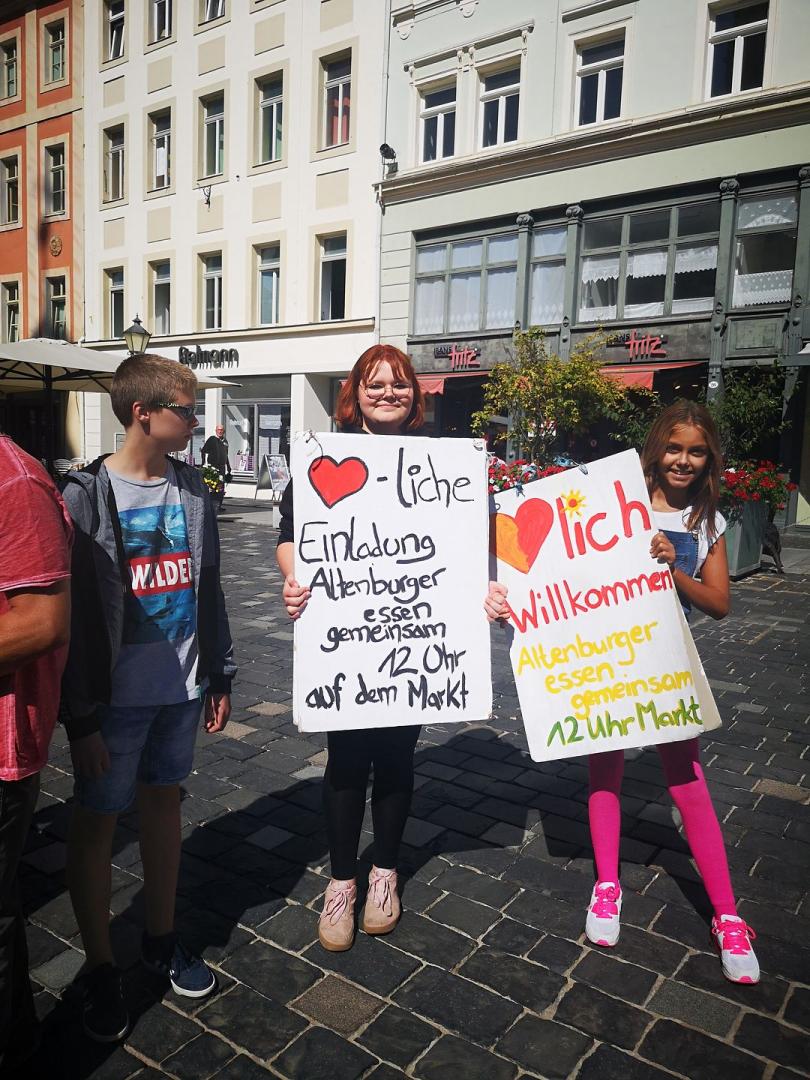 Balmann
fritz
fritz
WILDE
❤-liche
Einladung
Altenburger
essen
gemeinsam
12 Uhr
auf dem Markt
❤lich
Willkommen
Altenburger
essen
gemeinsam
12 Uhr Markt